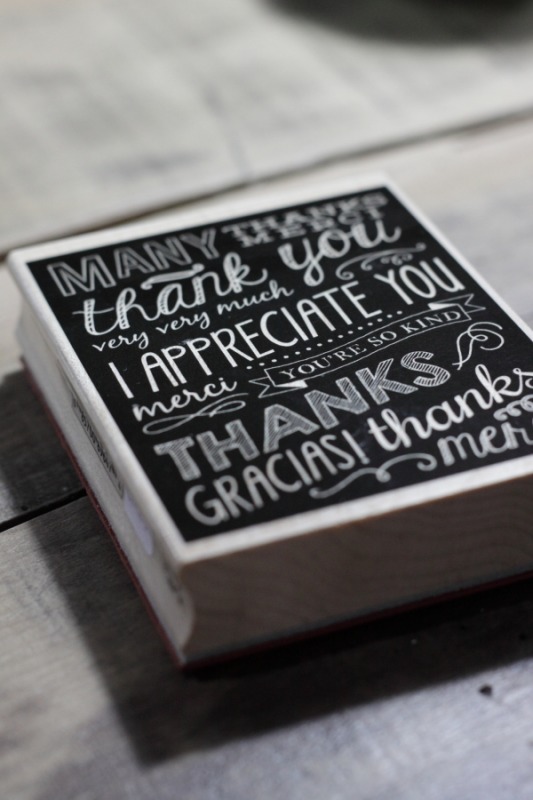 MANY THANKS
MERCI
thank you
very very much
I APPRECIATE YOU
merci YOU'RE SO KIND
THANKS
GRACIAS! thanks
mer